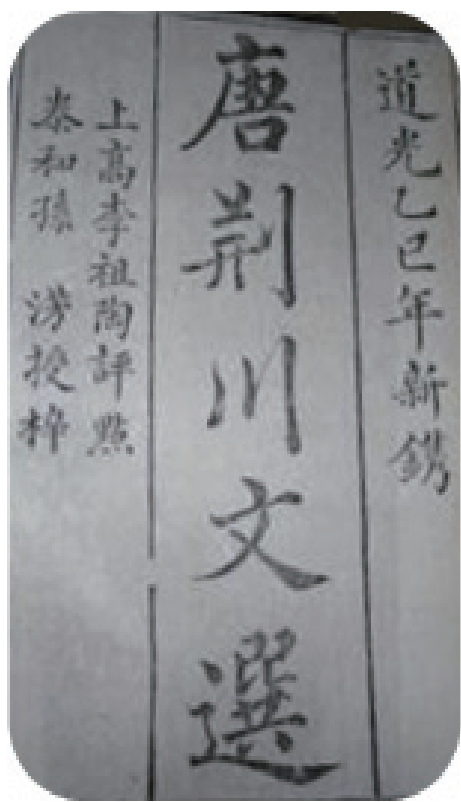 道光乙巳年新鐫
唐荊川文選
上高李祖陶評點
泰和孫 滂授梓